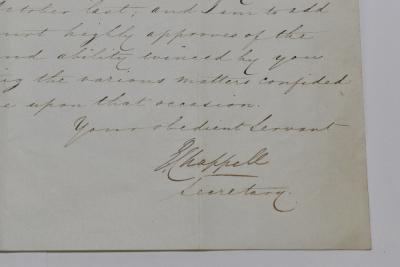 October last; and I am to add
most highly approves of the
and ability evinced by you
ing the various matters confided
e upon that occasion.
Your obedient Servant
E Chappell
Secretary.